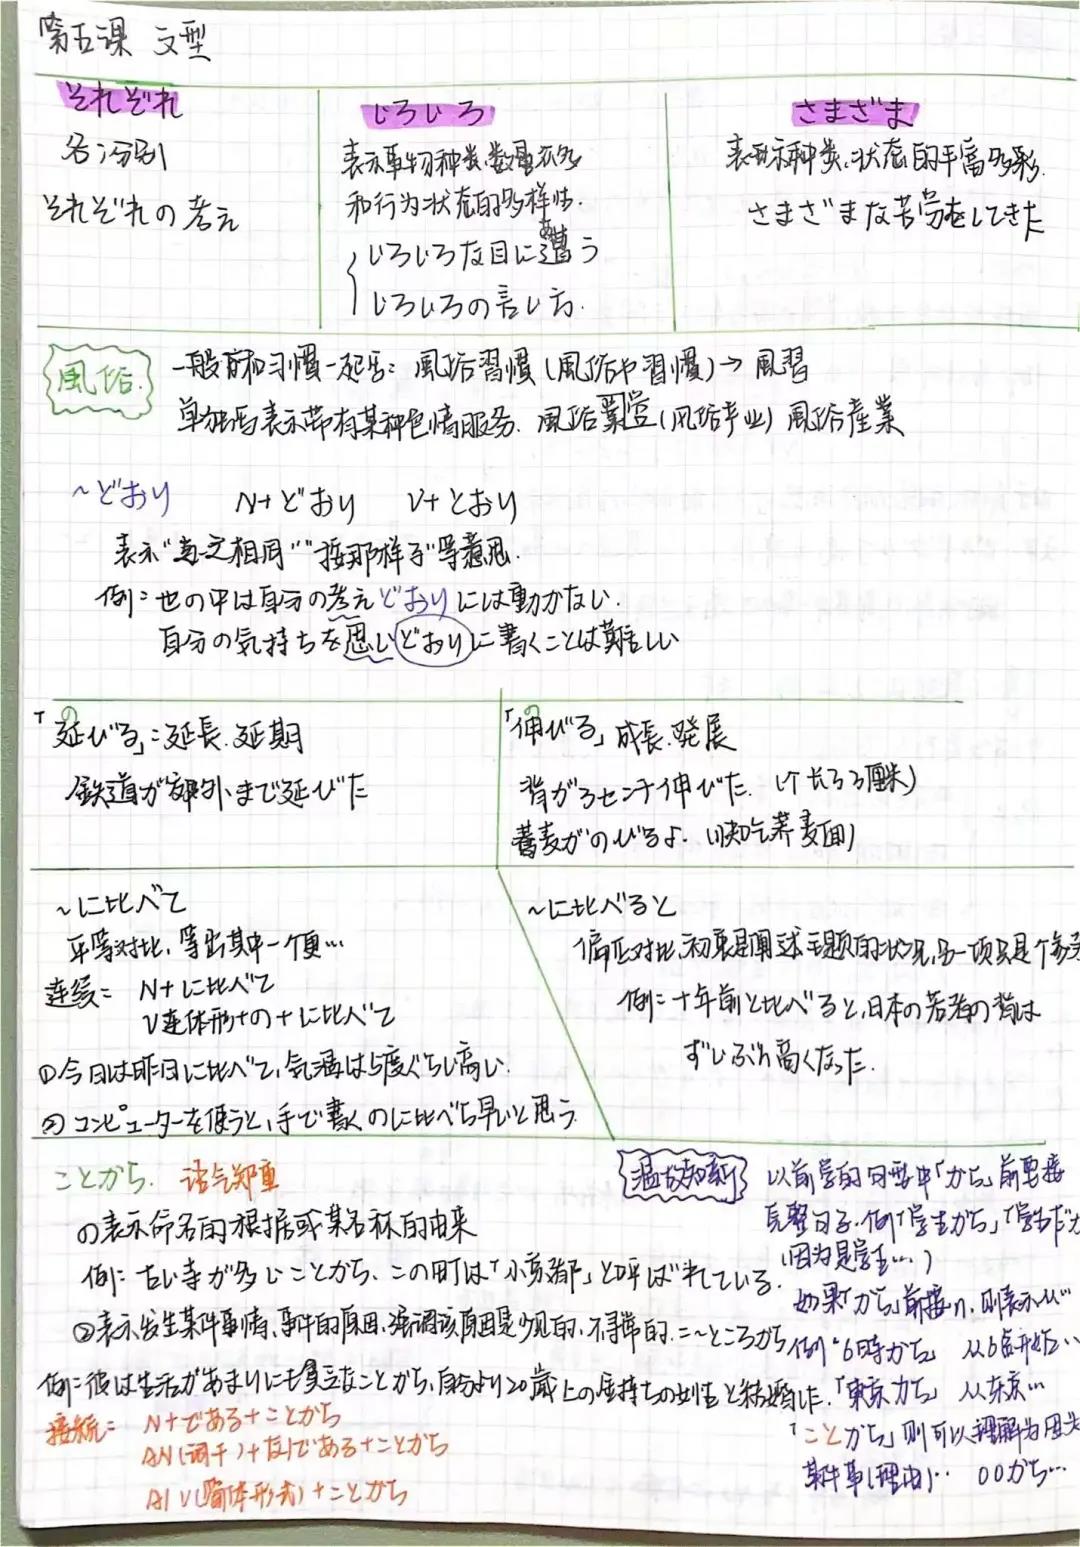 第五课 文型
それぞれ
各、分别
それぞれの考え
いろいろ
表示事物种类、数量众多
和行为状态的多样性.
いろいろな目に遭う
いろいろの言い方.
さまざま
表示种类、状态的丰富多彩.
さまざまな苦労をしてきた
風俗.
一般和习慣一起写: 風俗習慣 (風俗や習慣) → 風習
单独写表示带有某种色情服务. 風俗業 (风俗产业) 風俗産業
~どおり N+どおり V+とおり
表示"与之相同""按那样子"等意思.
例: 世の中は自分の考えどおりには動かない.
自分の気持ちを思いどおりに書くことは難しい
「延びる」: 延長. 延期
の
鉄道が郊外まで延びた
「伸びる」成長. 発展
の
背が3センチ伸びた. (个长了3厘米)
蕎麦がのびるよ. (快吃荞麦面)
~に比べて
平等对比, 等出其中一个更…
连续: N+に比べて
V连体形+の+に比べて
①今日は昨日に比べて, 気温は5度ぐらい高い.
② コンピューターを使うと, 手で書くのに比べら早いと思う
~に比べると
偏正对比, 初衷是阐述主题的状况, 另一项只是个参考
例: 十年前と比べると, 日本の若者の背は
ずいぶん高くなった.
ことから. 语气郑重
①表示命名的根据或某名称的由来
例: 古い寺が多いことから、この町は「小京都」と呼ばれている.
②表示发生某件事情、事件的原因. 强调该原因是少见的, 不寻常的. =~ところから
例: 彼は生活があまりにも貧乏なことから, 自分より20歳上の金持ちの女性と結婚した.
接続: N+である+ことから
AN(词干)+な/である+ことから
A/V(简体形式)+ことから
温故知新
以前学的句型中「から」前要接
完整句子. 例「学生から」「学生だか
(因为是学生…)
如果「から」前接n, 则表示从…
例 "6時から」 从6点开始…
「東京から」 从东京…
「ことから」则可以理解为因为
某件事(理由)… 〇〇から…